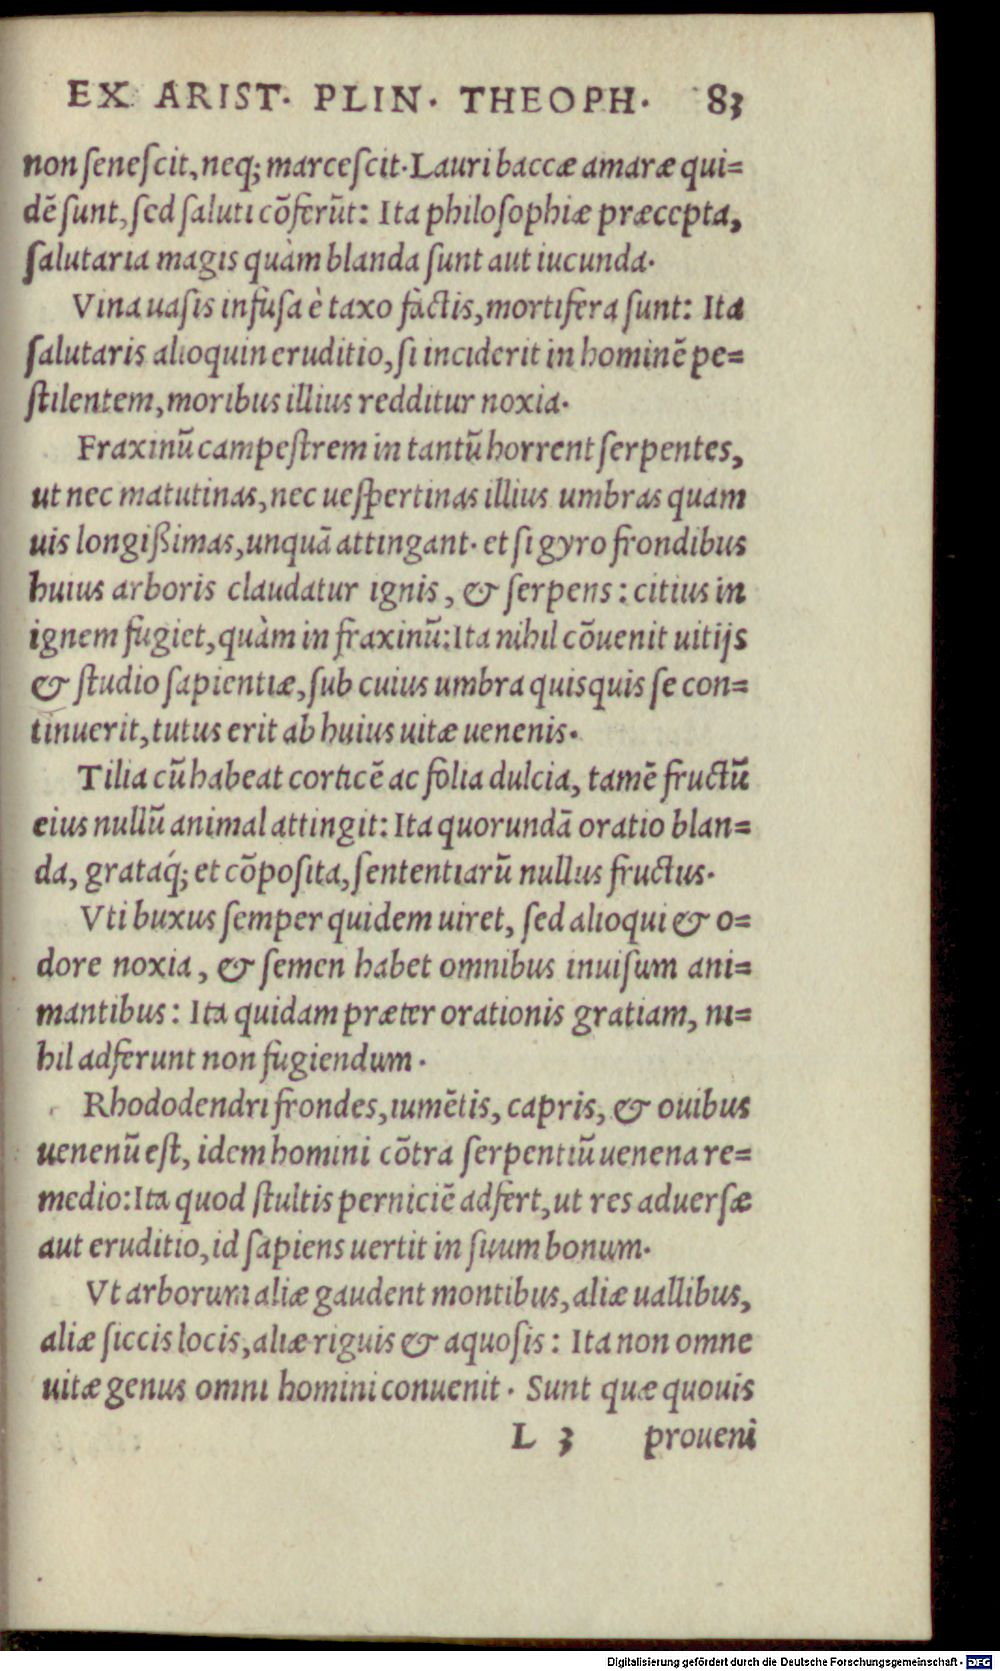 EX ARIST. PLIN. THEOPH. 83
non ſeneſcit, neq; marceſcit. Lauri baccæ amaræ qui=
dē ſunt, ſed ſaluti cōferūt: Ita philoſophiæ præcepta,
ſalutaria magis quàm blanda ſunt aut iucunda.
Vina uaſis infuſa è taxo factis, mortifera ſunt: Ita
ſalutaris alioquin eruditio, ſi inciderit in hominē pe=
ſtilentem, moribus illius redditur noxia.
Fraxinū campeſtrem in tantū horrent ſerpentes,
ut nec matutinas, nec ueſpertinas illius umbras quam
uis longißimas, unquā attingant. et ſi gyro frondibus
huius arboris claudatur ignis, & ſerpens: citius in
ignem fugiet, quàm in fraxinū: Ita nihil cōuenit uitijs
& ſtudio ſapientiæ, ſub cuius umbra quisquis ſe con=
tinuerit, tutus erit ab huius uitæ uenenis.
Tilia cū habeat corticē ac folia dulcia, tamē fructū
eius nullū animal attingit: Ita quorundā oratio blan=
da, grataq́; et cōpoſita, ſententiarū nullus fructus.
Vti buxus ſemper quidem uiret, ſed alioqui & o=
dore noxia, & ſemen habet omnibus inuiſum ani=
mantibus: Ita quidam præter orationis gratiam, ni=
hil adferunt non fugiendum.
Rhododendri frondes, iumētis, capris, & ouibus
uenenū eſt, idem homini cōtra ſerpentiū uenena re=
medio: Ita quod ſtultis perniciē adfert, ut res aduerſæ
aut eruditio, id ſapiens uertit in ſuum bonum.
Vt arborum aliæ gaudent montibus, aliæ uallibus,
aliæ ſiccis locis, aliæ riguis & aquoſis: Ita non omne
uitæ genus omni homini conuenit. Sunt quæ quouis
L 3 proueni
Digitalisierung gefördert durch die Deutsche Forschungsgemeinschaft - DFG